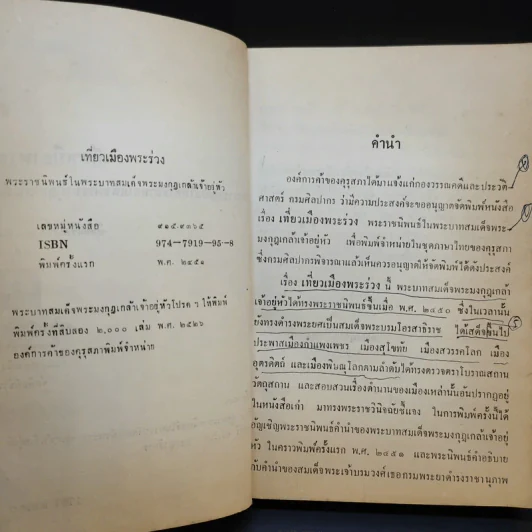 เที่ยวเมืองพระร่วง
พระราชนิพนธ์ในพระบาทสมเด็จพระมงกุฎเกล้าเจ้าอยู่หัว
เลขหมู่หนังสือ ๙๑๕.๙๓๖๕
ISBN 974-7919-95-8
พิมพ์ครั้งแรก พ.ศ. ๒๔๕๑
พระบาทสมเด็จพระมงกุฎเกล้าเจ้าอยู่หัวโปรด ฯ ให้พิมพ์
พิมพ์ครั้งที่สิบสอง ๒,๐๐๐ เล่ม พ.ศ. ๒๕๒๖
องค์การค้าของคุรุสภาพิมพ์จำหน่าย
คำนำ
องค์การค้าของคุรุสภาได้มาแจ้งแก่กองวรรณคดีและประวัติ
ศาสตร์ กรมศิลปากร ว่ามีความประสงค์จะขออนุญาตจัดพิมพ์หนังสือ
เรื่อง เที่ยวเมืองพระร่วง พระราชนิพนธ์ในพระบาทสมเด็จพระ
มงกุฎเกล้าเจ้าอยู่หัว เพื่อพิมพ์จำหน่ายในชุดภาษาไทยของคุรุสภา
ซึ่งกรมศิลปากรพิจารณาแล้วเห็นควรอนุญาตให้จัดพิมพ์ได้ดังประสงค์
เรื่อง เที่ยวเมืองพระร่วง นี้ พระบาทสมเด็จพระมงกุฎเกล้า
เจ้าอยู่หัวได้ทรงพระราชนิพนธ์ขึ้นเมื่อ พ.ศ. ๒๔๕๐ ซึ่งในเวลานั้น
ยังทรงดำรงพระยศเป็นสมเด็จพระบรมโอรสาธิราช ได้เสด็จขึ้นไป
ประพาสเมืองกำแพงเพชร เมืองสุโขทัย เมืองสวรรคโลก เมือง
อุตรดิตถ์ และเมืองพิษณุโลกตามลำดับได้ทรงตรวจตราโบราณสถาน
วัตถุสถาน และสอบสวนเรื่องตำนานของเมืองเหล่านั้นอันปรากฏอยู่
ในหนังสือเก่า มาทรงพระราชวินิจฉัยชี้แจง ในการพิมพ์ครั้งนี้ได้
อัญเชิญพระราชนิพนธ์คำนำของพระบาทสมเด็จพระมงกุฎเกล้าเจ้าอยู่
หัว ในคราวพิมพ์ครั้งแรก พ.ศ. ๒๔๕๑ และพระนิพนธ์คำอธิบาย
กับคำนำของสมเด็จพระเจ้าบรมวงศ์เธอ กรมพระยาดำรงราชานุภาพ